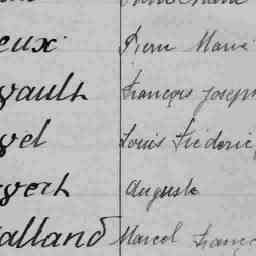 eux Pierre Marie
vault François Joseph
vel Louis Frédéric
vert Auguste
alland Marcel Franç